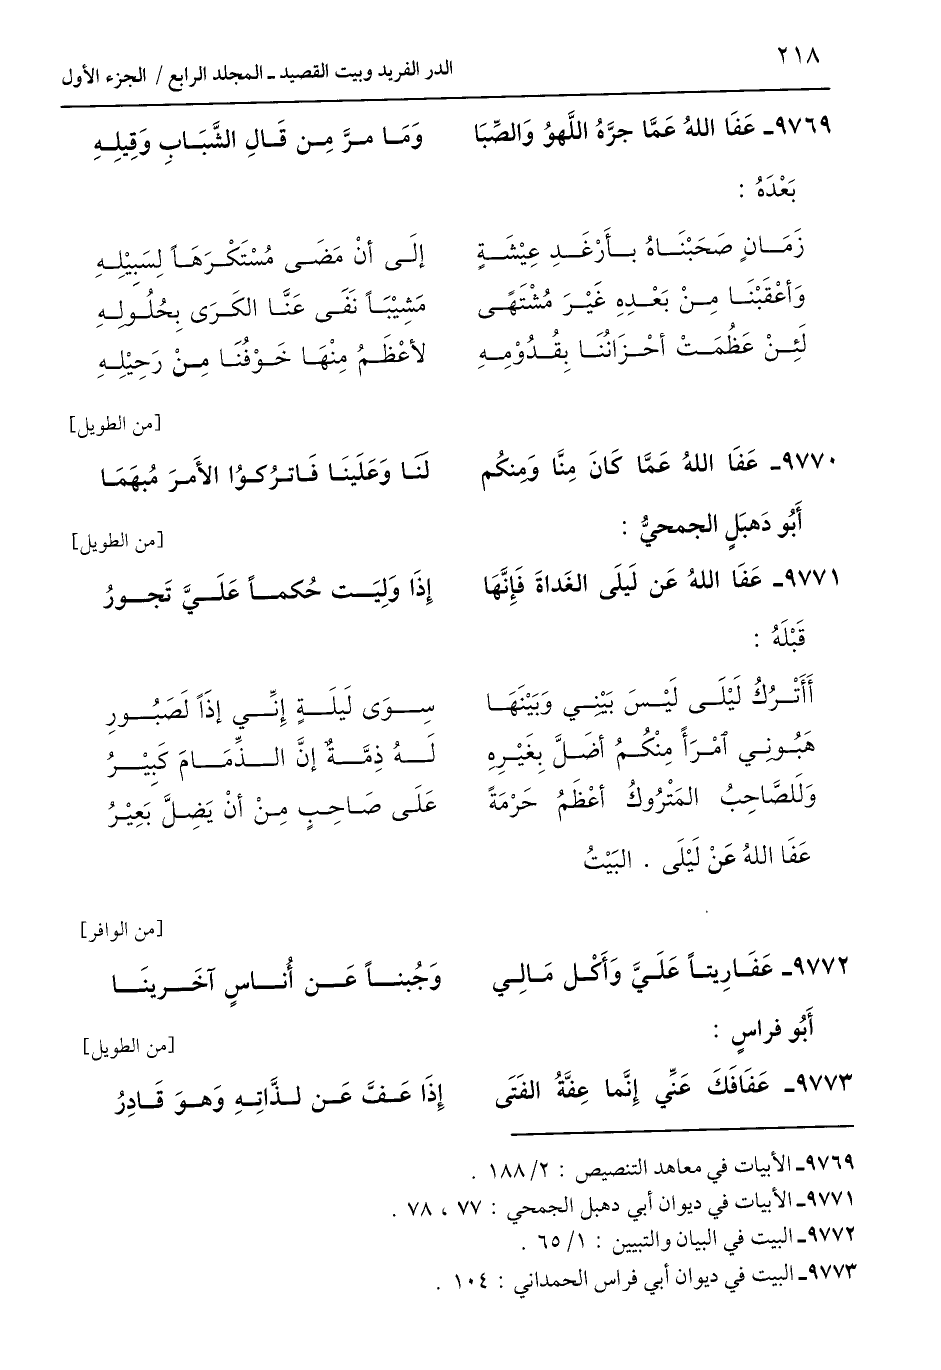 ٢١٨
الدر الفريد وبيت القصيد ـ المجلد الرابع / الجزء الأول
٩٧٦٩ـ عَفَا اللهُ عَمَّا جرَّهُ اللَّهوُ وَالصِّبَا وَمَا مرَّ مِن قَالِ الشَّبَابِ وَقِيلِهِ
بَعْدَهُ :
زَمَانٍ صَحَبْنَاهُ بأَرْغَدِ عِيْشَةٍ إلَى أنْ مَضَى مُسْتَكْرَهَاً لِسَبِيْلِهِ
وَأعْقَبْنَا مِنْ بَعْدِهِ غَيْرَ مُشْتَهًى مَشِيْبَاً نَفَى عَنَّا الكَرَى بِحُلُولِهِ
لَئِنْ عَظُمَتْ أحْزَانُنَا بِقُدُوْمِهِ لأعْظَمُ مِنْهَا خَوْفُنَا مِنْ رَحِيْلِهِ
[من الطويل]
٩٧٧٠ـ عَفَا اللهُ عَمَّا كَانَ مِنَّا وَمِنكُم لَنَا وَعَلَينَا فَاتركُوُا الأَمرَ مُبهَمَا
أَبُو دَهبَلٍ الجمحيُّ :
[من الطويل]
٩٧٧١ـ عَفَا اللهُ عَن لَيلَى الغَداةَ فَإِنَّهَا إذَا وَلِيَت حُكماً عَلَيَّ تَجورُ
قَبْلَهُ :
أَأَتْركُ لَيْلَى لَيْسَ بَيْنِي وَبَيْنَهَا سِوَى لَيلَةٍ إنِّي إذَاً لَصَبُورِ
هَبُونِي ٱمْرَأً مِنْكُمُ أضَلَّ بِغَيْرِهِ لَهُ ذِمَّةٌ إنَّ الذِّمَامَ كَبِيْرُ
وَلَلصَّاحِبُ المَتْرُوكُ أعْظَمُ حَرْمَةً عَلَى صَاحِبٍ مِنْ أنْ يَضِلَّ بَعِيْرُ
عَفَا اللهُ عَنْ لَيْلَى . البَيْتُ
[من الوافر]
٩٧٧٢ـ عَفَاريتاً عَلَيَّ وَأَكْل مَالِي وَجُبناً عَن أُناسٍ آخَرِينَا
أَبُو فراسٍ :
[من الطويل]
٩٧٧٣ـ عَفَافَكَ عَنِّي إِنَّما عِفَّةُ الفَتَى إذَا عَفَّ عَن لذَّاتِهِ وَهوَ قَادِرُ
٩٧٦٩ـ الأبيات في معاهد التنصيص : ٢/ ١٨٨ .
٩٧٧١ـ الأبيات في ديوان أبي دهبل الجمحي : ٧٧ ، ٧٨ .
٩٧٧٢ـ البيت في البيان والتبيين : ١/ ٦٥ .
٩٧٧٣ـ البيت في ديوان أبي فراس الحمداني : ١٠٤ .